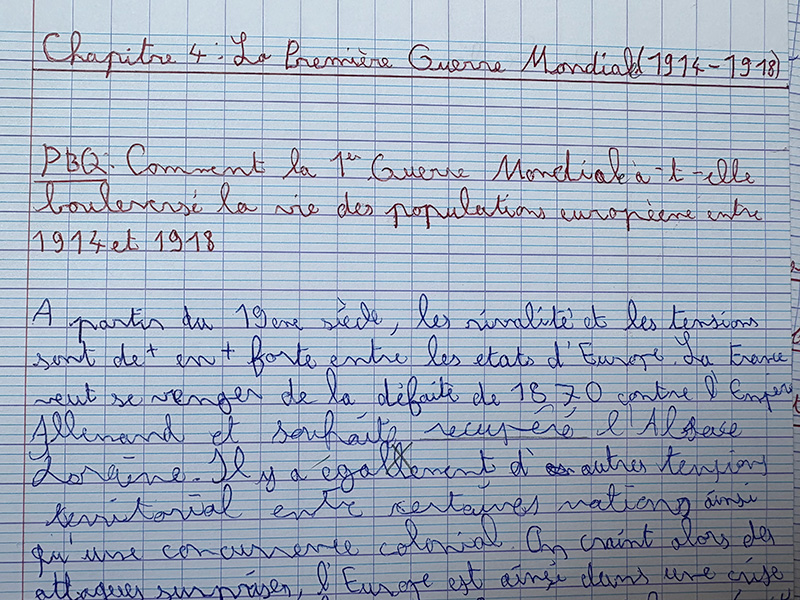 Chapitre 4 : La Première Guerre Mondiale (1914-1918)
PBQ : Comment la 1er Guerre Mondiale à-t-elle
bouleversé la vie des populations européene entre
1914 et 1918
A partir du 19ene siècle, les rivalité et les tensions
sont de + en + forte entre les etats d'Europe. La France
veut se venger de la défaite de 1870 contre l'Empere
Allemand et souhaite recupéré l'Alsace
Loraine. Il y a égallement d'autres tensions
territorial entre certaines nations ainsi
qu'une concurrence colonial. On craint alors des
attaques surprises, l'Europe est ainsi dans une crise